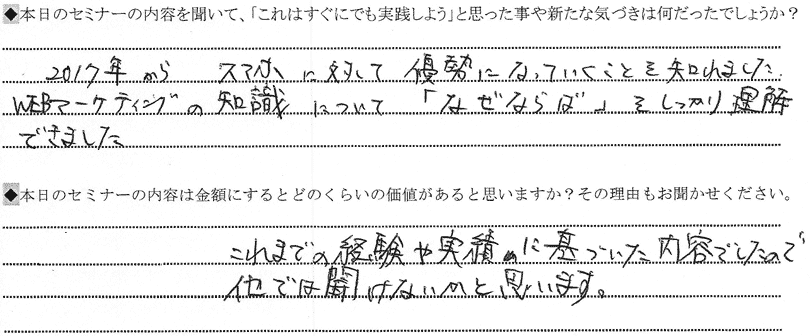 ◆本日のセミナーの内容を聞いて、「これはすぐにでも実践しよう」と思った事や新たな気づきは何だったでしょうか？
2017年から スマホに対して 優勢になっていくことを知れました
WEBマーケティングの知識について 「なぜならば」をしっかり理解
できました
◆本日のセミナーの内容は金額にするとどのくらいの価値があると思いますか？その理由もお聞かせください。
これまでの経験や実績に基づいた内容でしたので
他では聞けないかと思います。